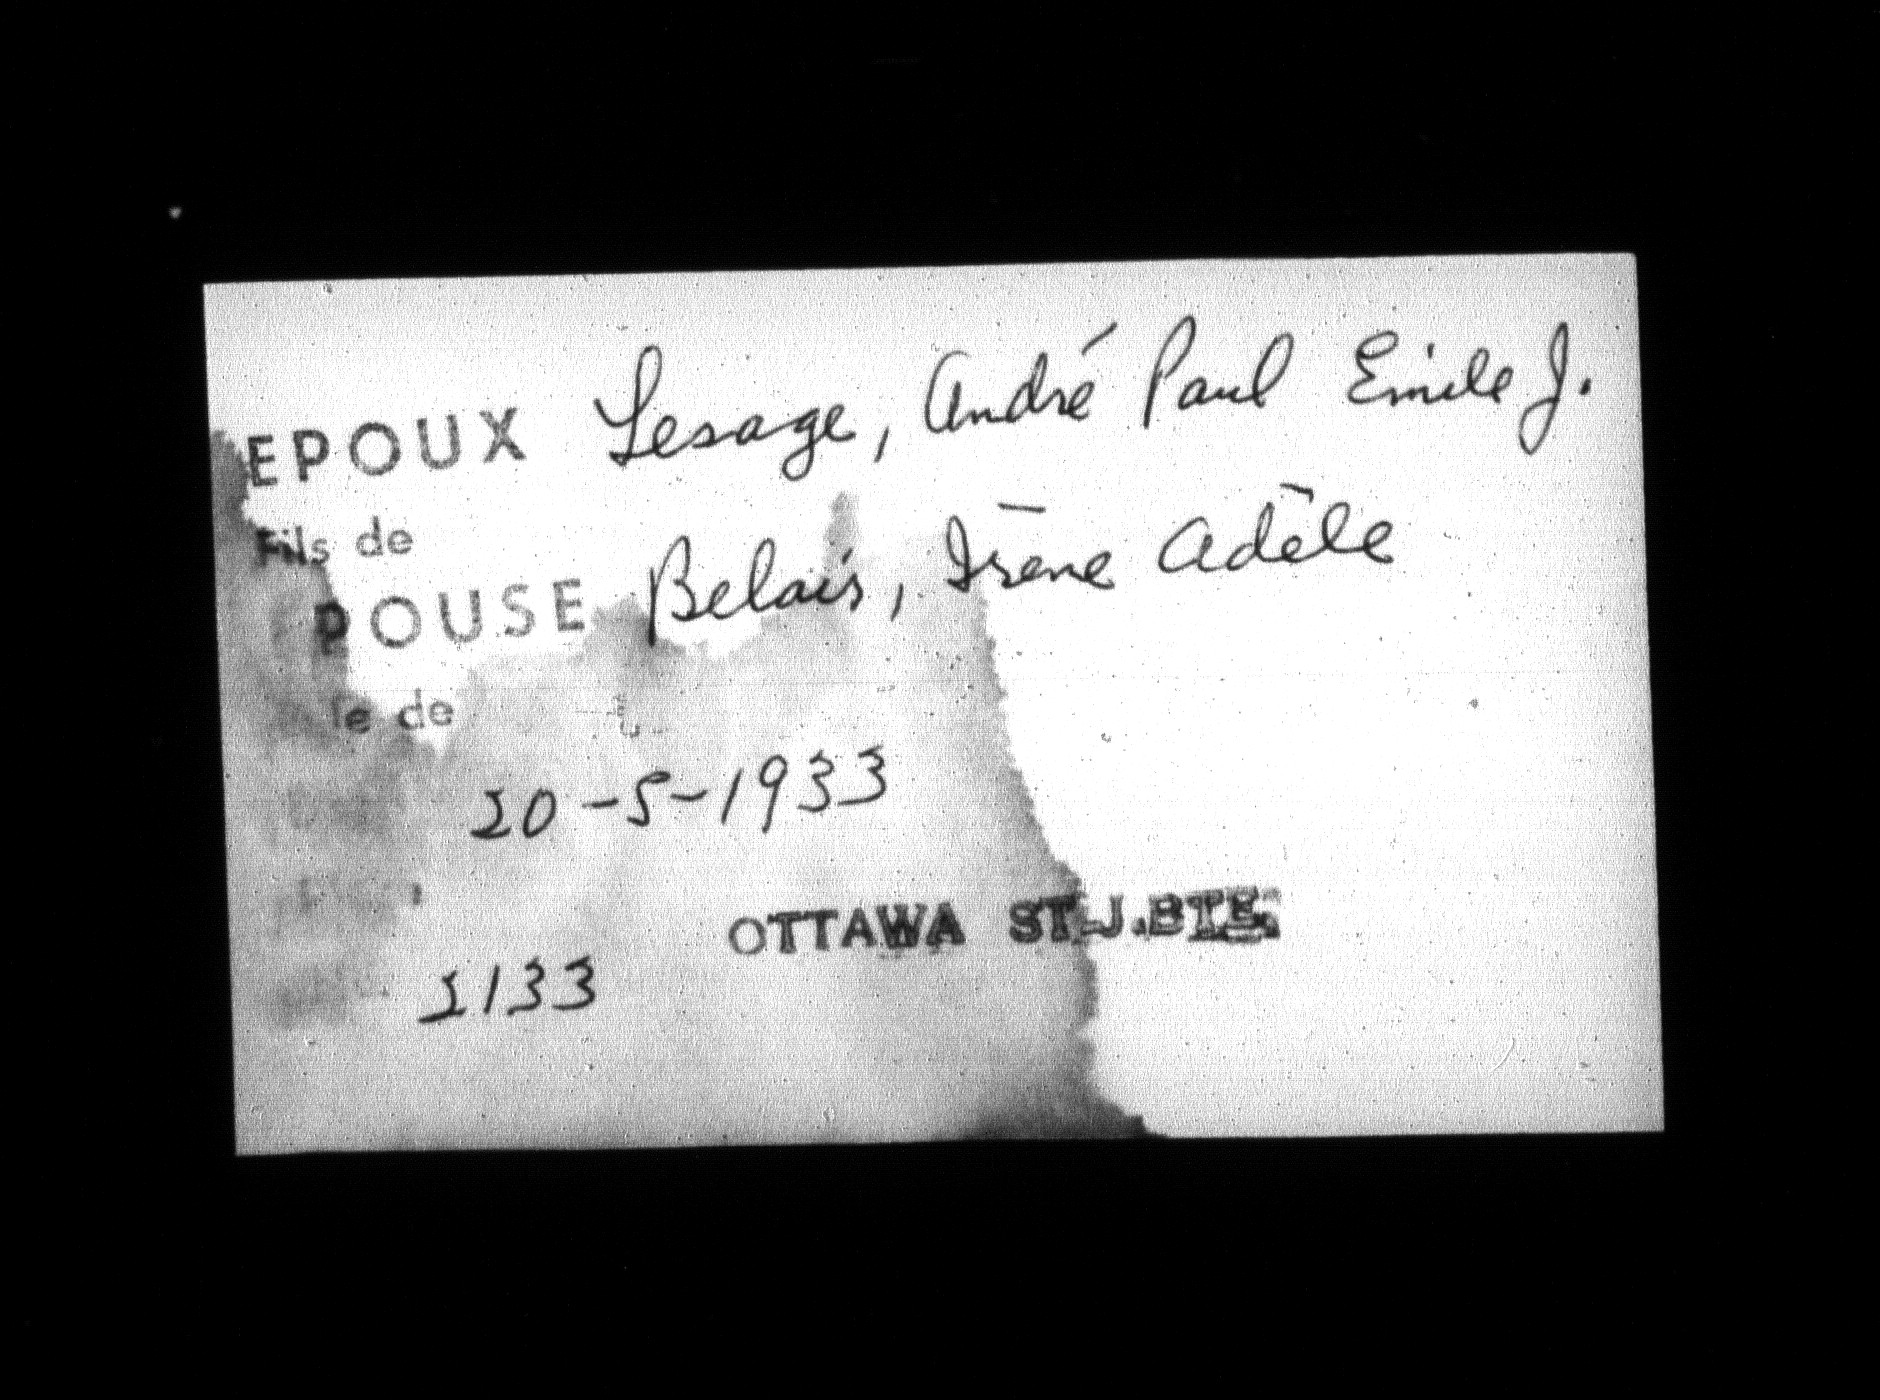 EPOUX Lesage, André Paul Emile J.
Fils de
POUSE Belais, Irène Adèle
le de
20-5-1933
OTTAWA ST-J.BTE.
1133